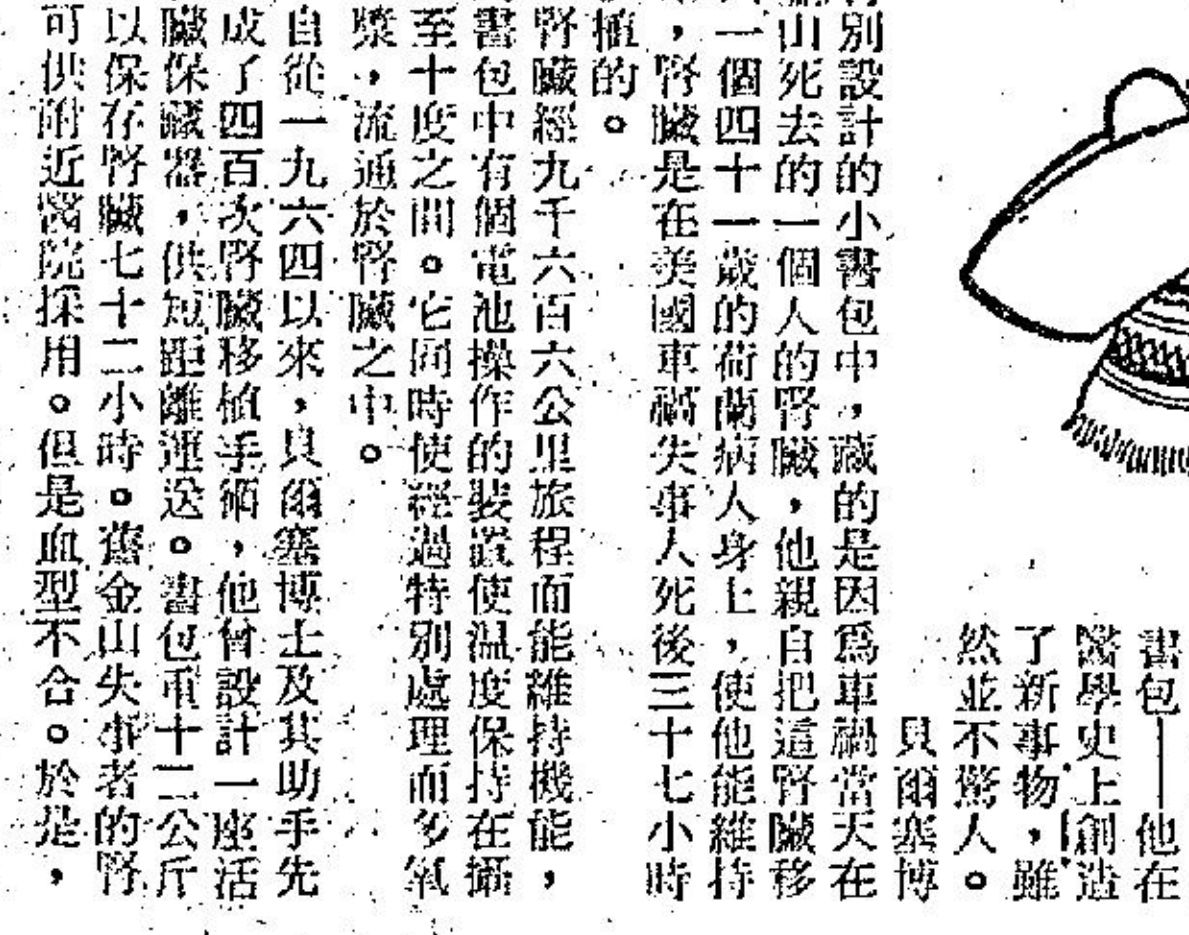 書包——他在
醫學史上創造
了新事物，雖
然並不驚人。
貝爾塞博
別設計的小書包中，藏的是因為車禍當天在
山死去的一個人的腎臟，他親自把這腎臟移
一個四十一歲的荷蘭病人身上，使他能維持
，腎臟是在美國車禍失事人死後三十七小時
植的。
腎臟經九千六百六公里旅程而能維持機能，
書包中有個電池操作的裝置使温度保持在攝
至十度之間。它同時使經過特別處理而多氧
漿，流通於腎臟之中。
自從一九六四以來，貝爾塞博士及其助手先
成了四百次腎臟移植手術，他曾設計一座活
臟保藏器，供短距離運送。書包重十二公斤
以保存腎臟七十二小時。舊金山失事者的腎
可供附近醫院採用。但是血型不合。於是，